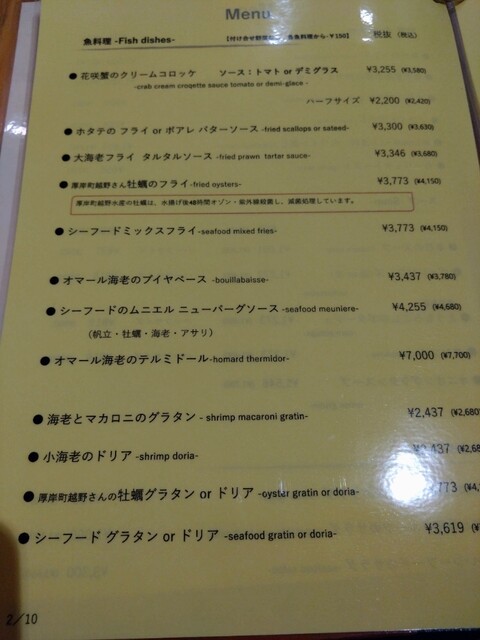 Menu
魚料理 -Fish dishes-
税抜 (税込)
● 花咲蟹のクリームコロッケ ソース：トマト or デミグラス ¥3,255 (¥3,580)
-crab creem croqette sauce tomato or demi-glace -
ハーフサイズ ¥2,200 (¥2,420)
● ホタテの フライ or ポアレ バターソース -fried scallops or sateed- ¥3,300 (¥3,630)
● 大海老フライ タルタルソース -fried prawn tartar sauce- ¥3,346 (¥3,680)
● 厚岸町越野さん牡蠣のフライ-fried oysters- ¥3,773 (¥4,150)
厚岸町越野水産の牡蠣は、水揚げ後48時間オゾン・紫外線殺菌し、滅菌処理しています。
● シーフードミックスフライ-seafood mixed fries- ¥3,773 (¥4,150)
● オマール海老のブイヤベース -bouillabaisse- ¥3,437 (¥3,780)
● シーフードのムニエル ニューバーグソース -seafood meuniere- ¥4,255 (¥4,680)
（帆立・牡蠣・海老・アサリ）
● オマール海老のテルミドール-homard thermidor- ¥7,000 (¥7,700)
● 海老とマカロニのグラタン - shrimp macaroni gratin- ¥2,437 (¥2,680
● 小海老のドリア -shrimp doria- 437 (¥2,68
● 厚岸町越野さんの牡蠣グラタン or ドリア -oyster gratin or doria- 773 (¥4,
● シーフード グラタン or ドリア -seafood gratin or doria- ¥3,619
2/10